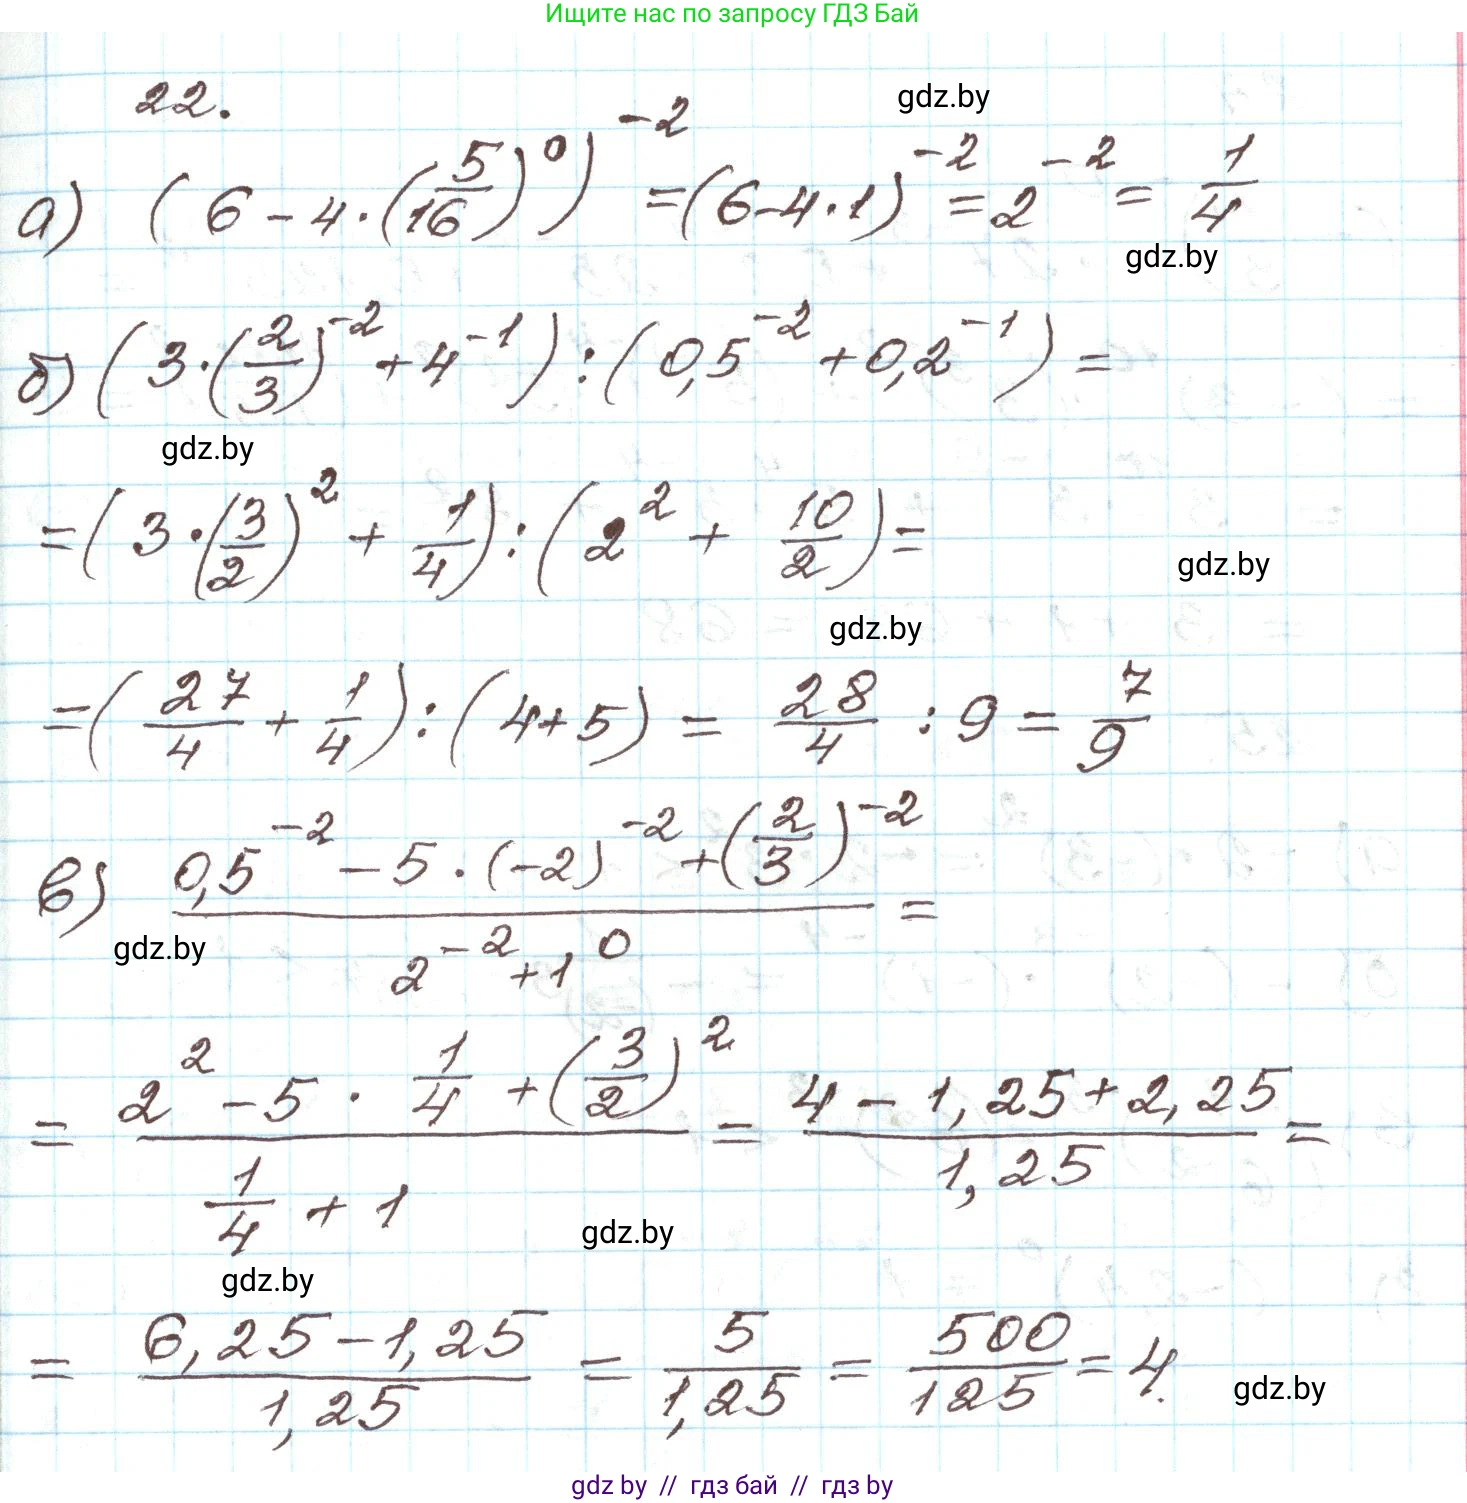 Ищите нас по запросу ГДЗ Бай
22.
gdz.by
а) (6 - 4 · (5/16)^0)^-2 = (6-4·1)^-2 = 2^-2 = 1/4
gdz.by
б) (3 · (2/3)^-2 + 4^-1) : (0,5^-2 + 0,2^-1) =
gdz.by
= (3 · (3/2)^2 + 1/4) : (2^2 + 10/2) =
gdz.by
gdz.by
= (27/4 + 1/4) : (4+5) = 28/4 : 9 = 7/9
в) (0,5^-2 - 5 · (-2)^-2 + (2/3)^-2)/(2^-2 + 1^0) =
gdz.by
= (2^2 - 5 · 1/4 + (3/2)^2)/(1/4 + 1) = (4 - 1,25 + 2,25)/(1,25) =
gdz.by
gdz.by
= (6,25 - 1,25)/(1,25) = 5/1,25 = 500/125 = 4.
gdz.by
gdz by // гдз бай // гдз by